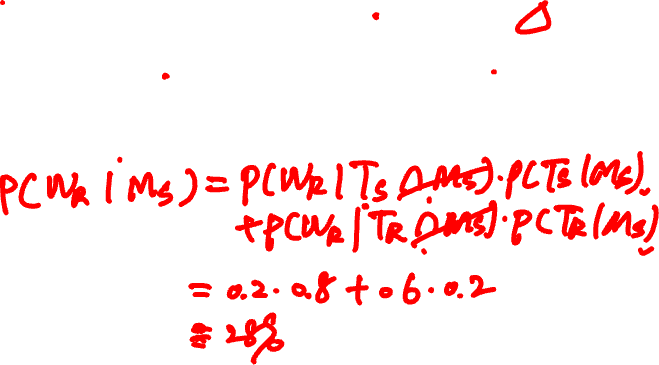 P(W_R | M_S) = P(W_R | T_S ∩ M_S) · P(T_S | M_S)
+ P(W_R | T_R ∩ M_S) · P(T_R | M_S)
= 0.2 · 0.8 + 0.6 · 0.2
= 28%